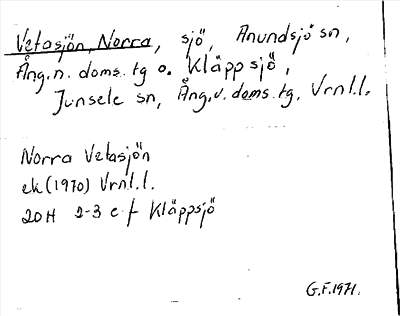 Vetasjön, Norra, sjö, Anundsjö sn,
Ång. n. doms. tg o. Kläppsjö,
Junsele sn, Ång. v. doms. tg. Vrnl.l.
Norra Vetasjön
ek (1970) Vrnl.l.
20H 2-3 e-f Kläppsjö
G.F. 1971.